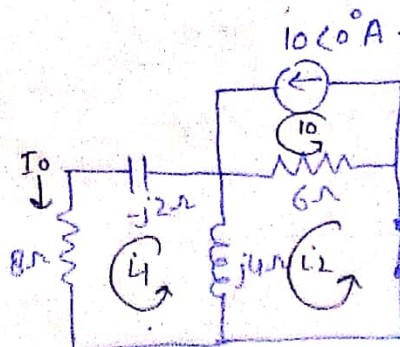 10<0°A.
10
I0
-j2Ω
6Ω
8Ω
i1
j4Ω
i2